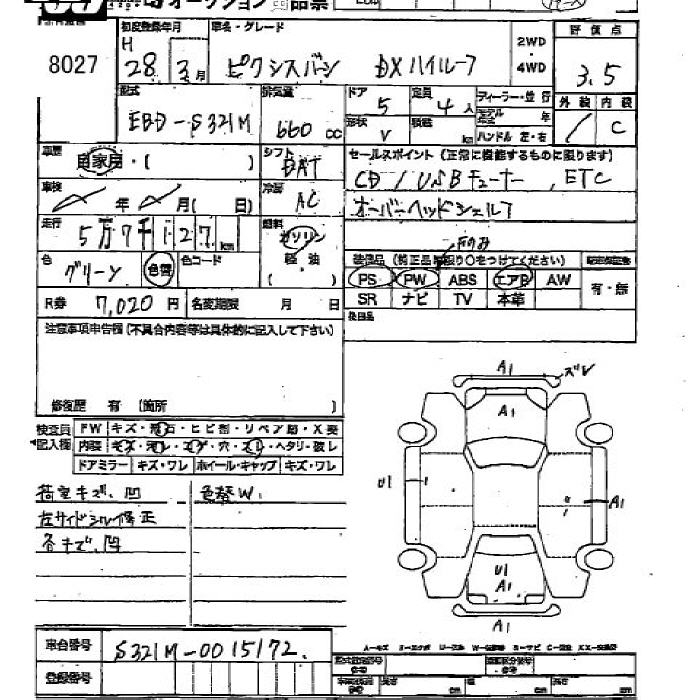 オークション出品票
8027
初度登録年月 車名・グレード
H 28 年 3月 ピクシスバン DXハイルーフ
2WD
・
4WD
評価点
3.5
型式 排気量 ドア 定員 ディーラー・並行
EBD-S321M 660 cc 5 4人
形状 V 積載 km
モデル年式 年
ハンドル 左・右
外装 内装
C
車歴 自家用・( ) シフト DAT
セールスポイント (正常に機能するものに限ります)
CD/USBチューナー, ETC
車検 年 月( 日) 冷房 AC
オーバーヘッドシェルフ
走行 5万7千127km 燃料 ガソリン
軽・油
( )
色 グリーン 色替 色コード
装備品 (純正品に限り○をつけてください)
PS PW ABS エアB AW
SR ナビ TV 本革
有・無
R券 7,020円 名変期限 月 日
後日品
注意事項申告欄(不具合内容等は具体的に記入して下さい)
修復歴 有 (箇所
検査員 FW キズ・飛石・ヒビ割・リペア跡・X要
記入欄 内装 キズ・汚レ・コゲ・穴・スレ・ヘタリ・破レ
ドアミラー キズ・ワレ ホイール・キャップ キズ・ワレ
荷室キズ、凹 色替W.
左サイドシル修正
各キズ、凹
A1 ズレ
A1
U1
A1
U1
A1
A1
車台番号 S321M-0015172
登録番号